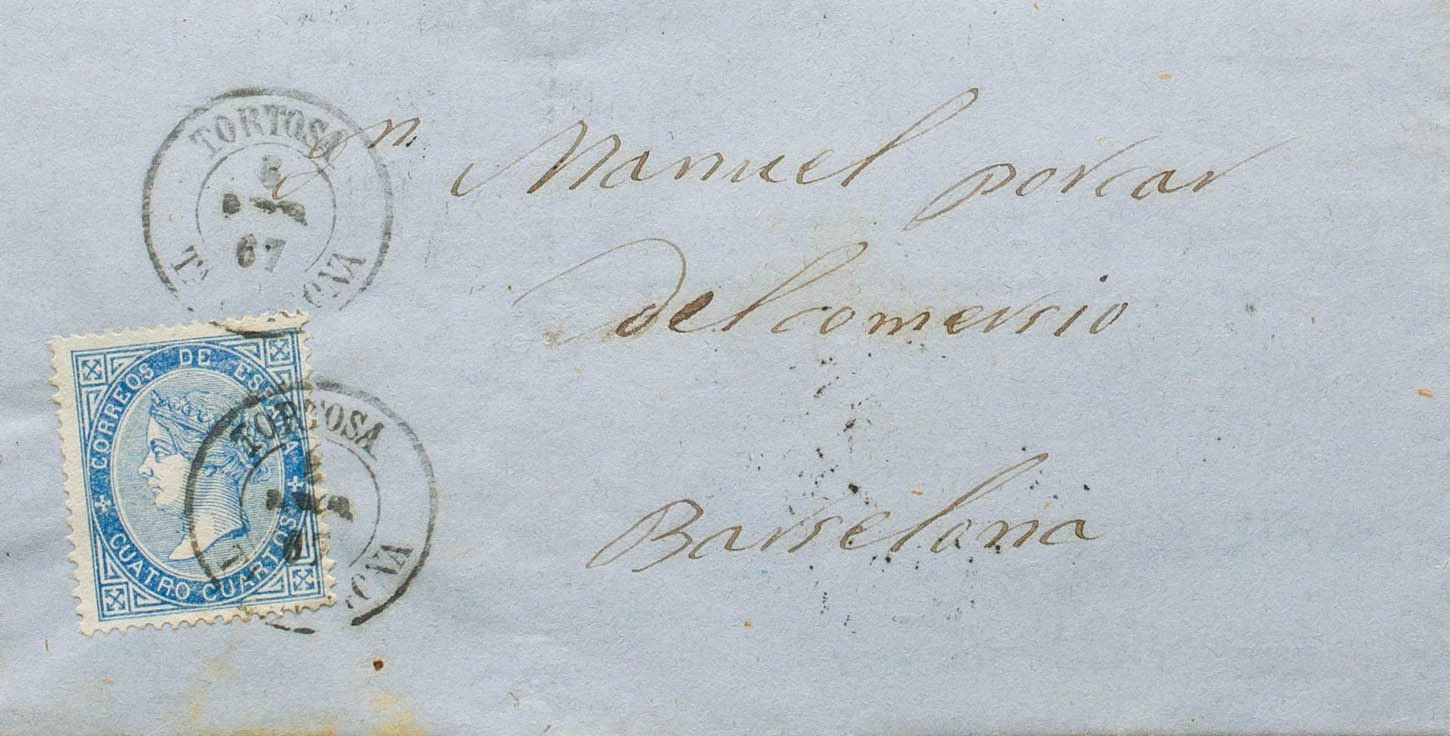 TORTOSA
67
Sn Manuel porcar
Del comersio
Barselona
CORREOS DE ESPAÑA
CUATRO CUARTOS
TORTOSA